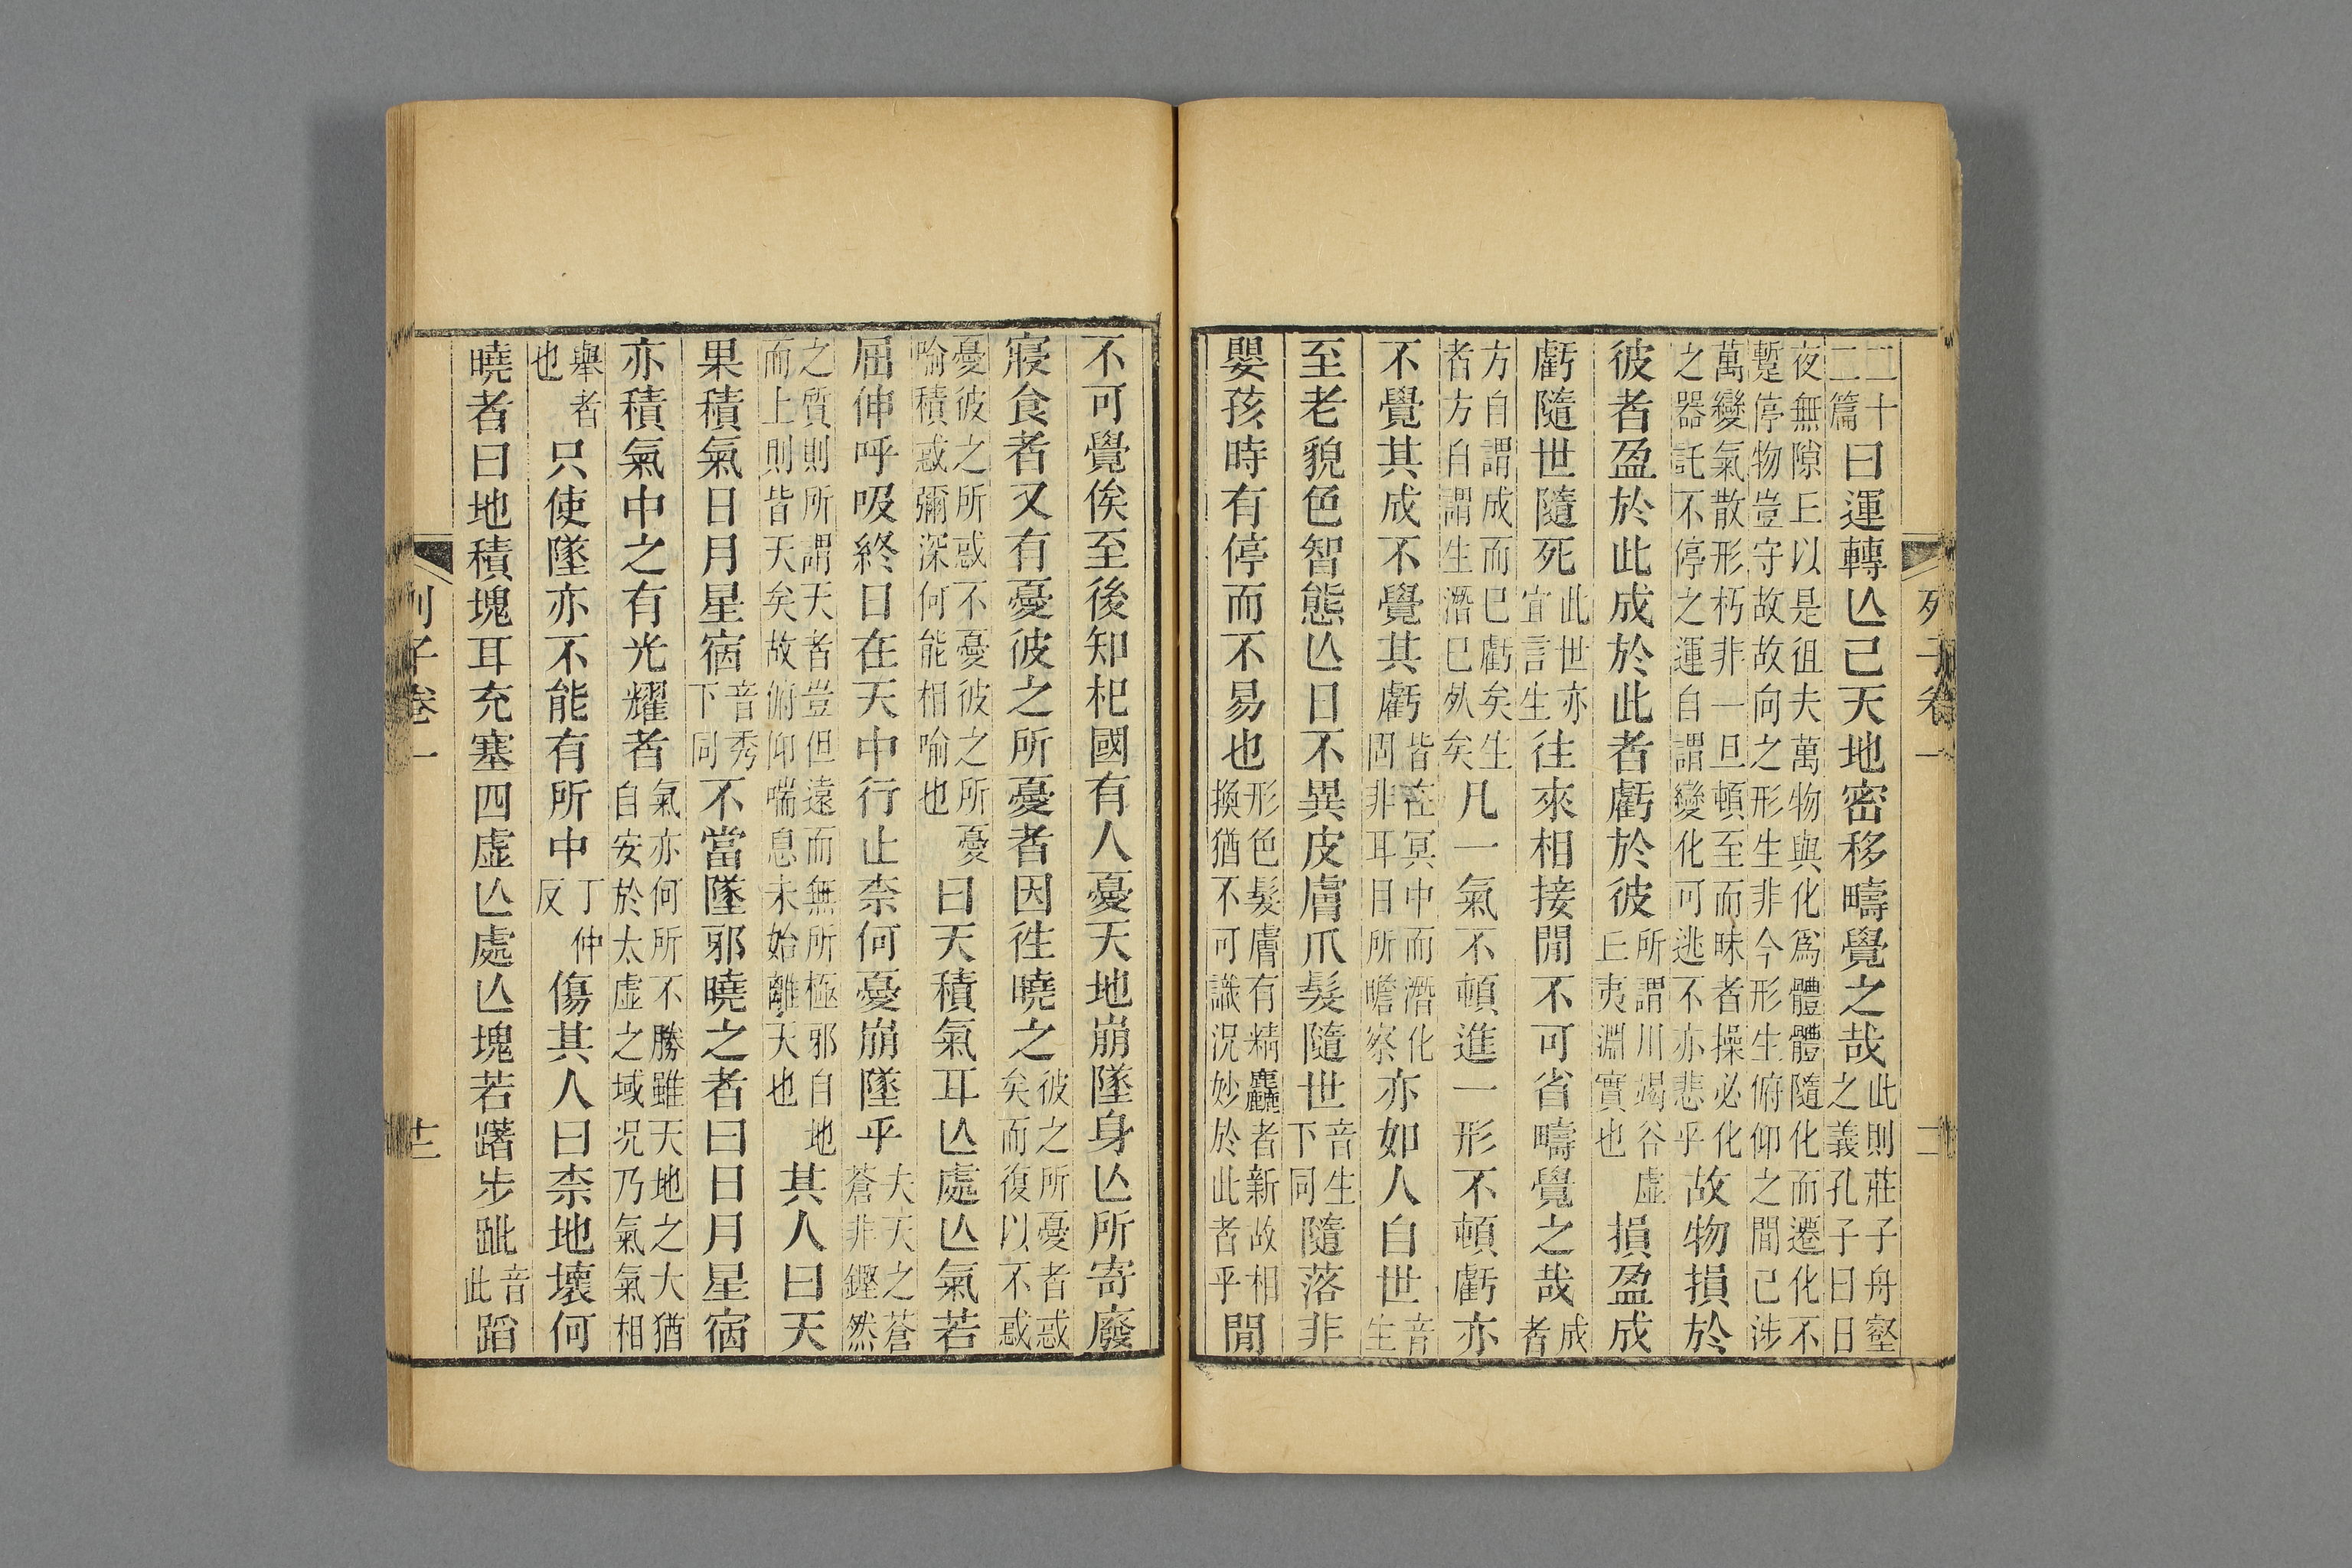 列子卷一 二
二十二篇曰運轉亾已天地密移疇覺之哉此則莊子舟壑之義孔子曰日
夜無隙丘以是徂夫萬物與化爲體體隨化而遷化不
蹔停物豈守故故向之形生非今形生俯仰之間已涉
萬變氣散形朽非一旦頓至而昧者操必化之器託不停之運自謂變化可逃不亦悲乎故物損於
彼者盈於此成於此者虧於彼所謂川竭谷虛丘夷淵實也損盈成
虧隨世隨死此世亦宜言生往來相接閒不可省疇覺之哉成者
方自謂成而已虧矣生者方自謂生潛已㱙矣凡一氣不頓進一形不頓虧亦
不覺其成不覺其虧皆在冥中而潛化固非耳目所瞻察亦如人自世音生
至老貌色智態亾日不異皮膚爪髮隨世音生下同隨落非
嬰孩時有停而不易也形色髮膚有精麤者新故相換猶不可識況妙於此者乎閒
不可覺俟至後知杞國有人憂天地崩墜身亾所寄廢
寢食者又有憂彼之所憂者因徃曉之彼之所憂者惑矣而復以不惑
憂彼之所惑不憂彼之所憂喻積惑彌深何能相喻也曰天積氣耳亾處亾氣若
屈伸呼吸終日在天中行止柰何憂崩墜乎大天之蒼蒼非鏗然
之質則所謂天者豈但遠而無所極邪自地而上則皆天矣故俯仰喘息未始離天也其人曰天
果積氣日月星宿音秀下同不當墜邪曉之者曰日月星宿
亦積氣中之有光耀者氣亦何所不勝雖天地之大猶自安於太虛之域況乃氣氣相
舉者也只使墜亦不能有所中丁仲反傷其人曰柰地壞何
曉者曰地積塊耳充塞四虛亾處亾塊若躇步跐音此蹈
列子卷一 十二